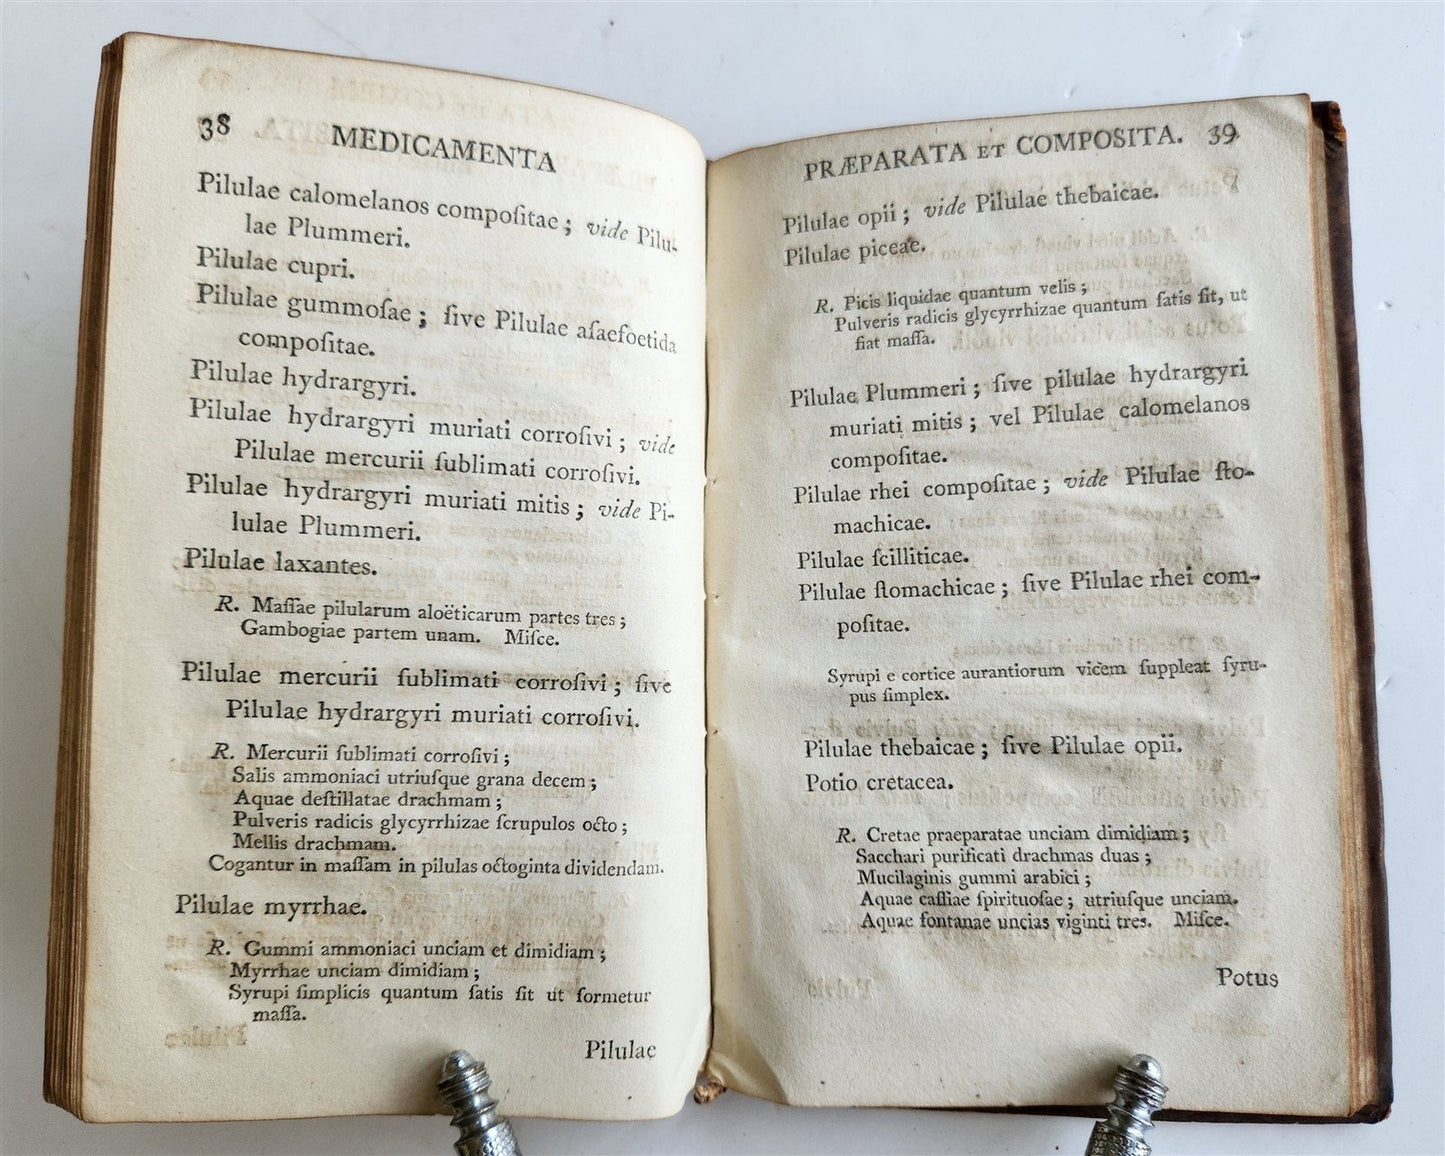 38 MEDICAMENTA
Pilulae calomelanos compoſitae ; vide Pilu-
lae Plummeri.
Pilulae cupri.
Pilulae gummoſae ; ſive Pilulae aſaefoetida
compoſitae.
Pilulae hydrargyri.
Pilulae hydrargyri muriati corroſivi ; vide
Pilulae mercurii ſublimati corroſivi.
Pilulae hydrargyri muriati mitis ; vide Pi-
lulae Plummeri.
Pilulae laxantes.
R. Maſſae pilularum aloëticarum partes tres ;
Gambogiae partem unam. Miſce.
Pilulae mercurii ſublimati corroſivi ; ſive
Pilulae hydrargyri muriati corroſivi.
R. Mercurii ſublimati corroſivi ;
Salis ammoniaci utriuſque grana decem ;
Aquae deſtillatae drachmam ;
Pulveris radicis glycyrrhizae ſcrupulos octo ;
Mellis drachmam.
Cogantur in maſſam in pilulas octoginta dividendam.
Pilulae myrrhae.
R. Gummi ammoniaci unciam et dimidiam ;
Myrrhae unciam dimidiam ;
Syrupi ſimplicis quantum ſatis ſit ut formetur
maſſa.
Pilulae
PRÆPARATA ET COMPOSITA. 39
Pilulae opii ; vide Pilulae thebaicae.
Pilulae piceae.
R. Picis liquidae quantum velis ;
Pulveris radicis glycyrrhizae quantum ſatis ſit, ut
fiat maſſa.
Pilulae Plummeri ; ſive pilulae hydrargyri
muriati mitis ; vel Pilulae calomelanos
compoſitae.
Pilulae rhei compoſitae ; vide Pilulae ſto-
machicae.
Pilulae ſcilliticae.
Pilulae ſtomachicae ; ſive Pilulae rhei com-
poſitae.
Syrupi e cortice aurantiorum vicem ſuppleat ſyru-
pus ſimplex.
Pilulae thebaicae ; ſive Pilulae opii.
Potio cretacea.
R. Cretae praeparatae unciam dimidiam ;
Sacchari purificati drachmas duas ;
Mucilaginis gummi arabici ;
Aquae caſſiae ſpirituoſae ; utriuſque unciam.
Aquae fontanae uncias viginti tres. Miſce.
Potus